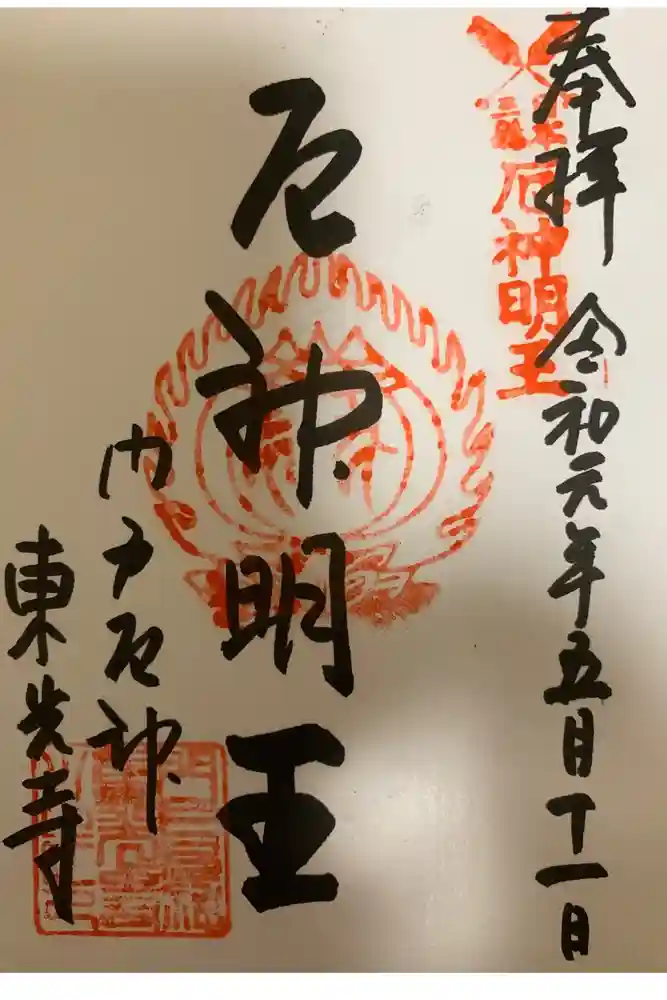 奉拝 令和元年五月十一日
厄神明王
厄神明王
門戸厄神
東光寺